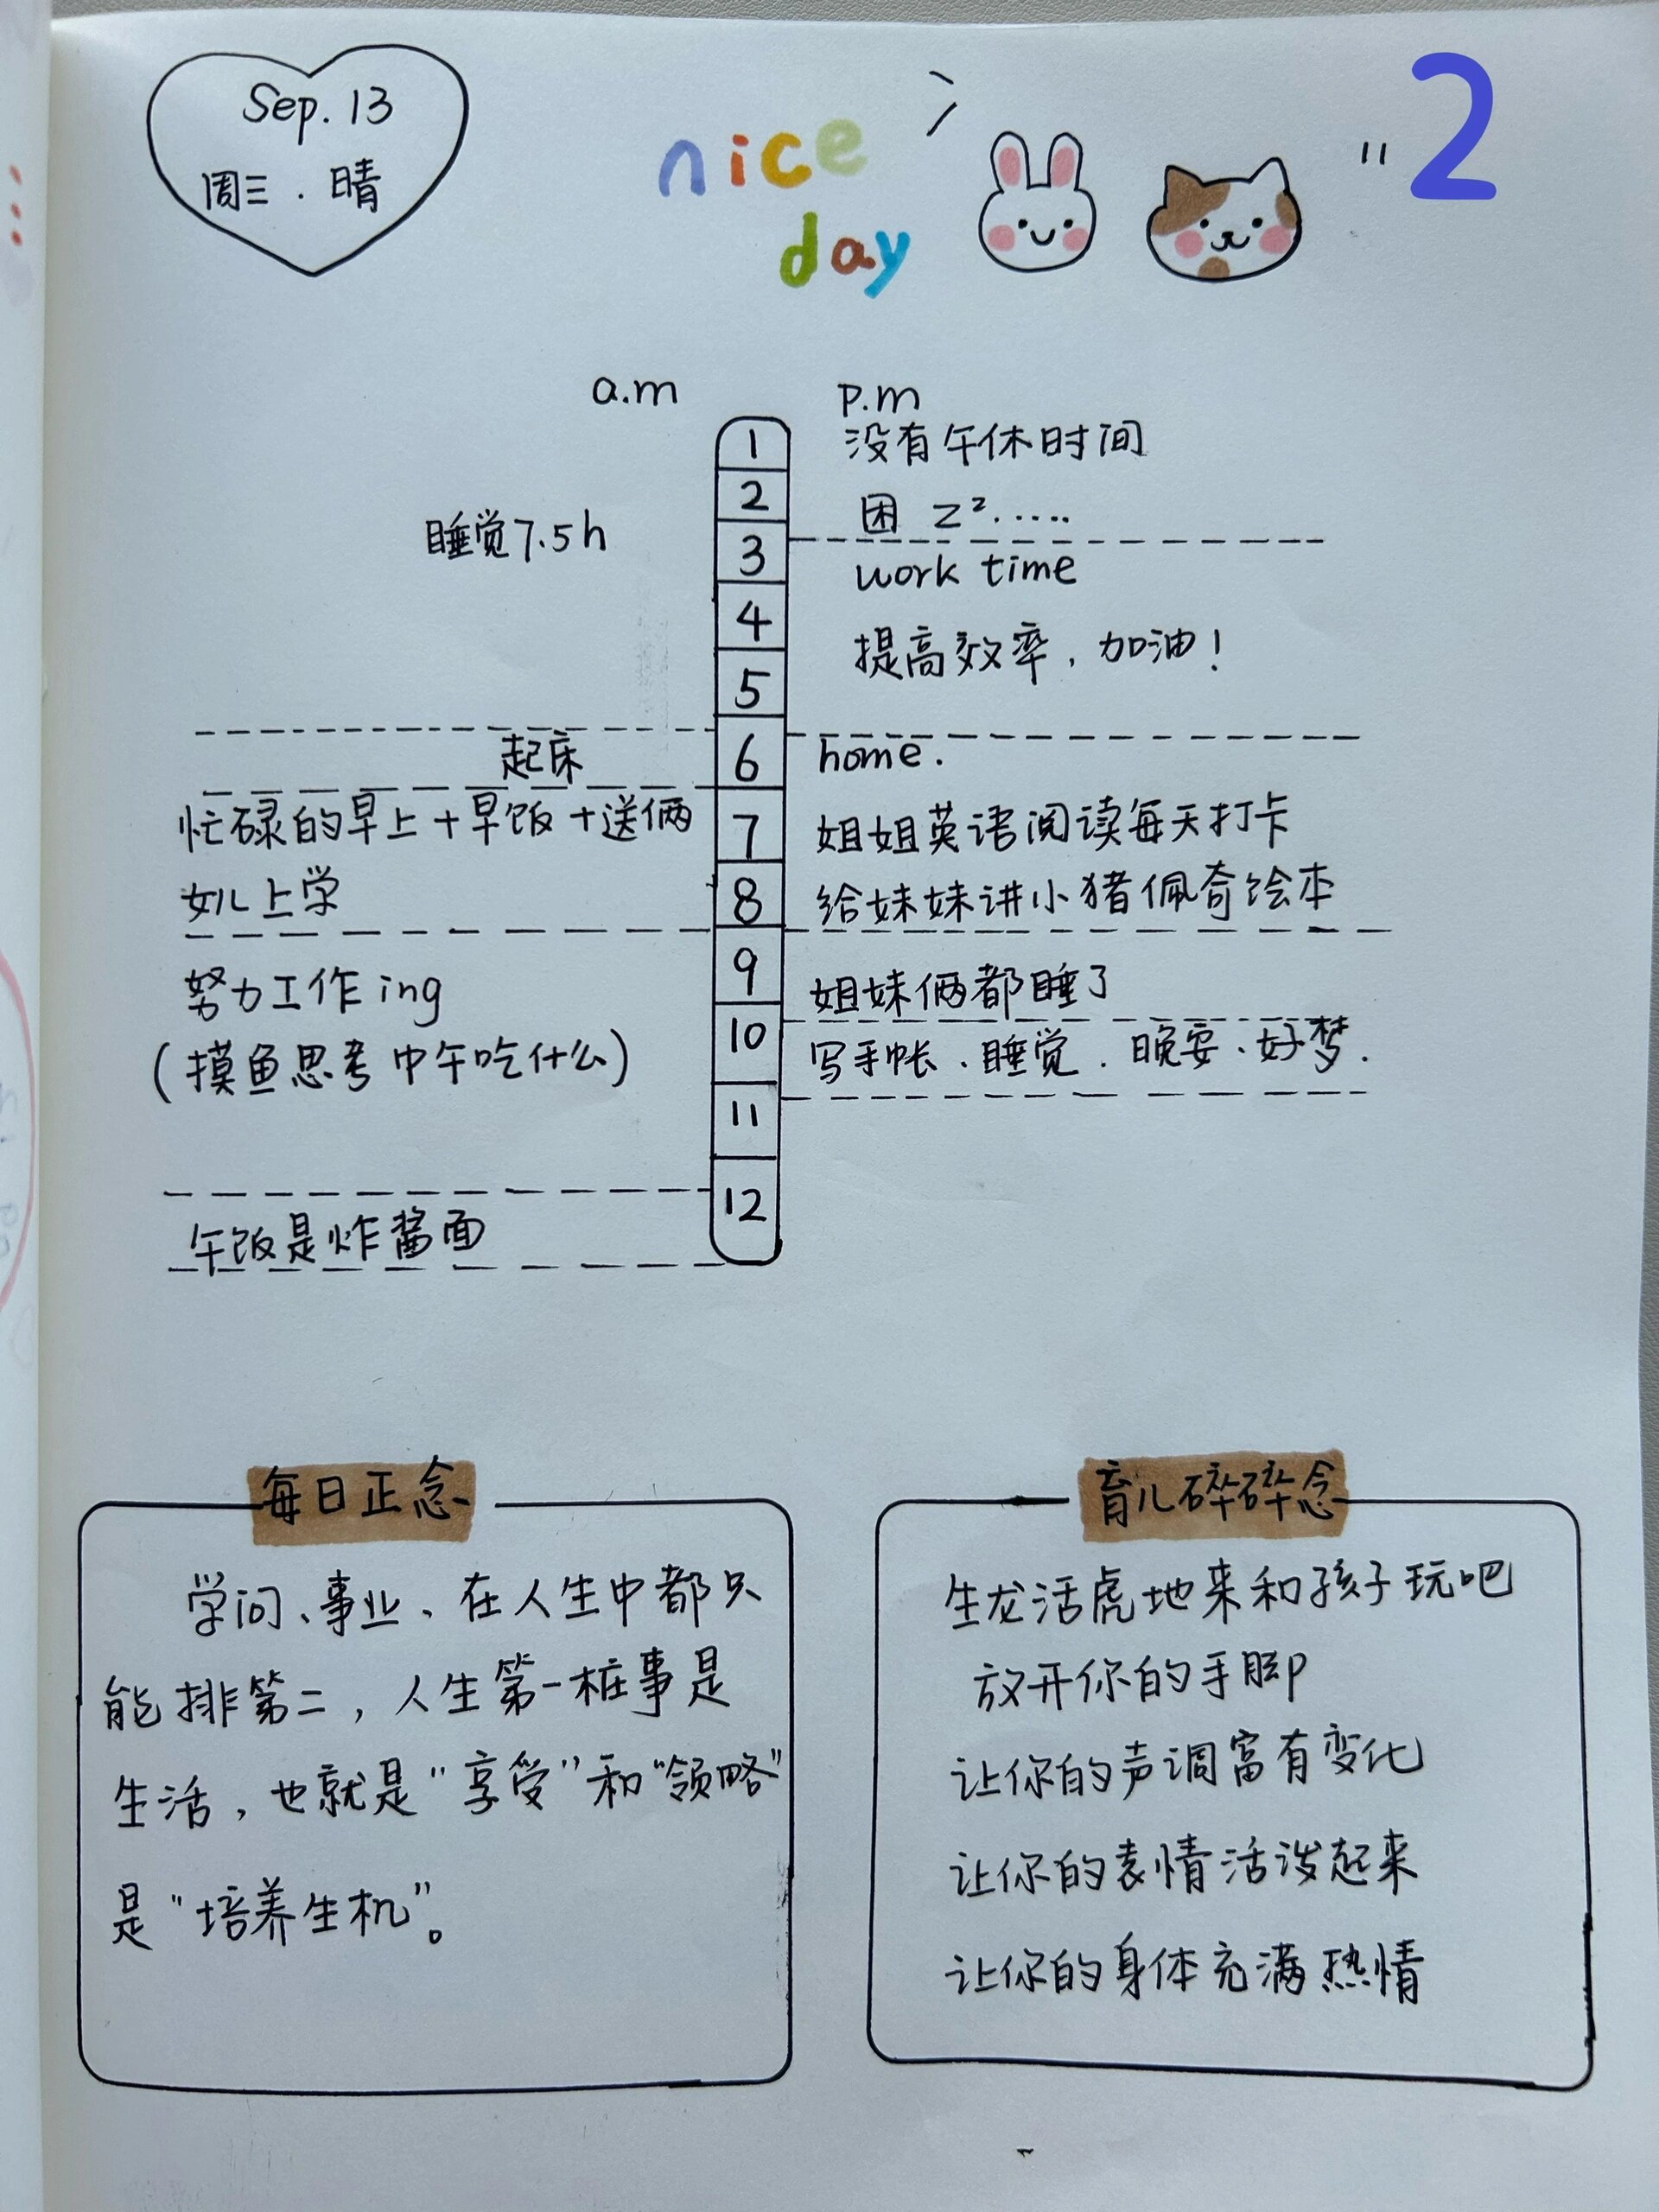 Sep. 13
周三 . 晴
nice
day
2
a.m
p.m
1
2
3
4
5
6
7
8
9
10
11
12
睡觉7.5h
起床
忙碌的早上+早饭+送俩
女儿上学
努力工作 ing
(摸鱼思考中午吃什么)
午饭是炸酱面
没有午休时间
困 z²......
work time
提高效率, 加油!
home.
姐姐英语阅读每天打卡
给妹妹讲小猪佩奇绘本
姐妹俩都睡了
写手帐、睡觉. 晚安、好梦.
每日正念
学问、事业、在人生中都只
能排第二, 人生第一桩事是
生活, 也就是“享受”和“领略”
是“培养生机”。
育儿碎碎念
生龙活虎地来和孩子玩吧
放开你的手脚
让你的声调富有变化
让你的表情活泼起来
让你的身体充满热情